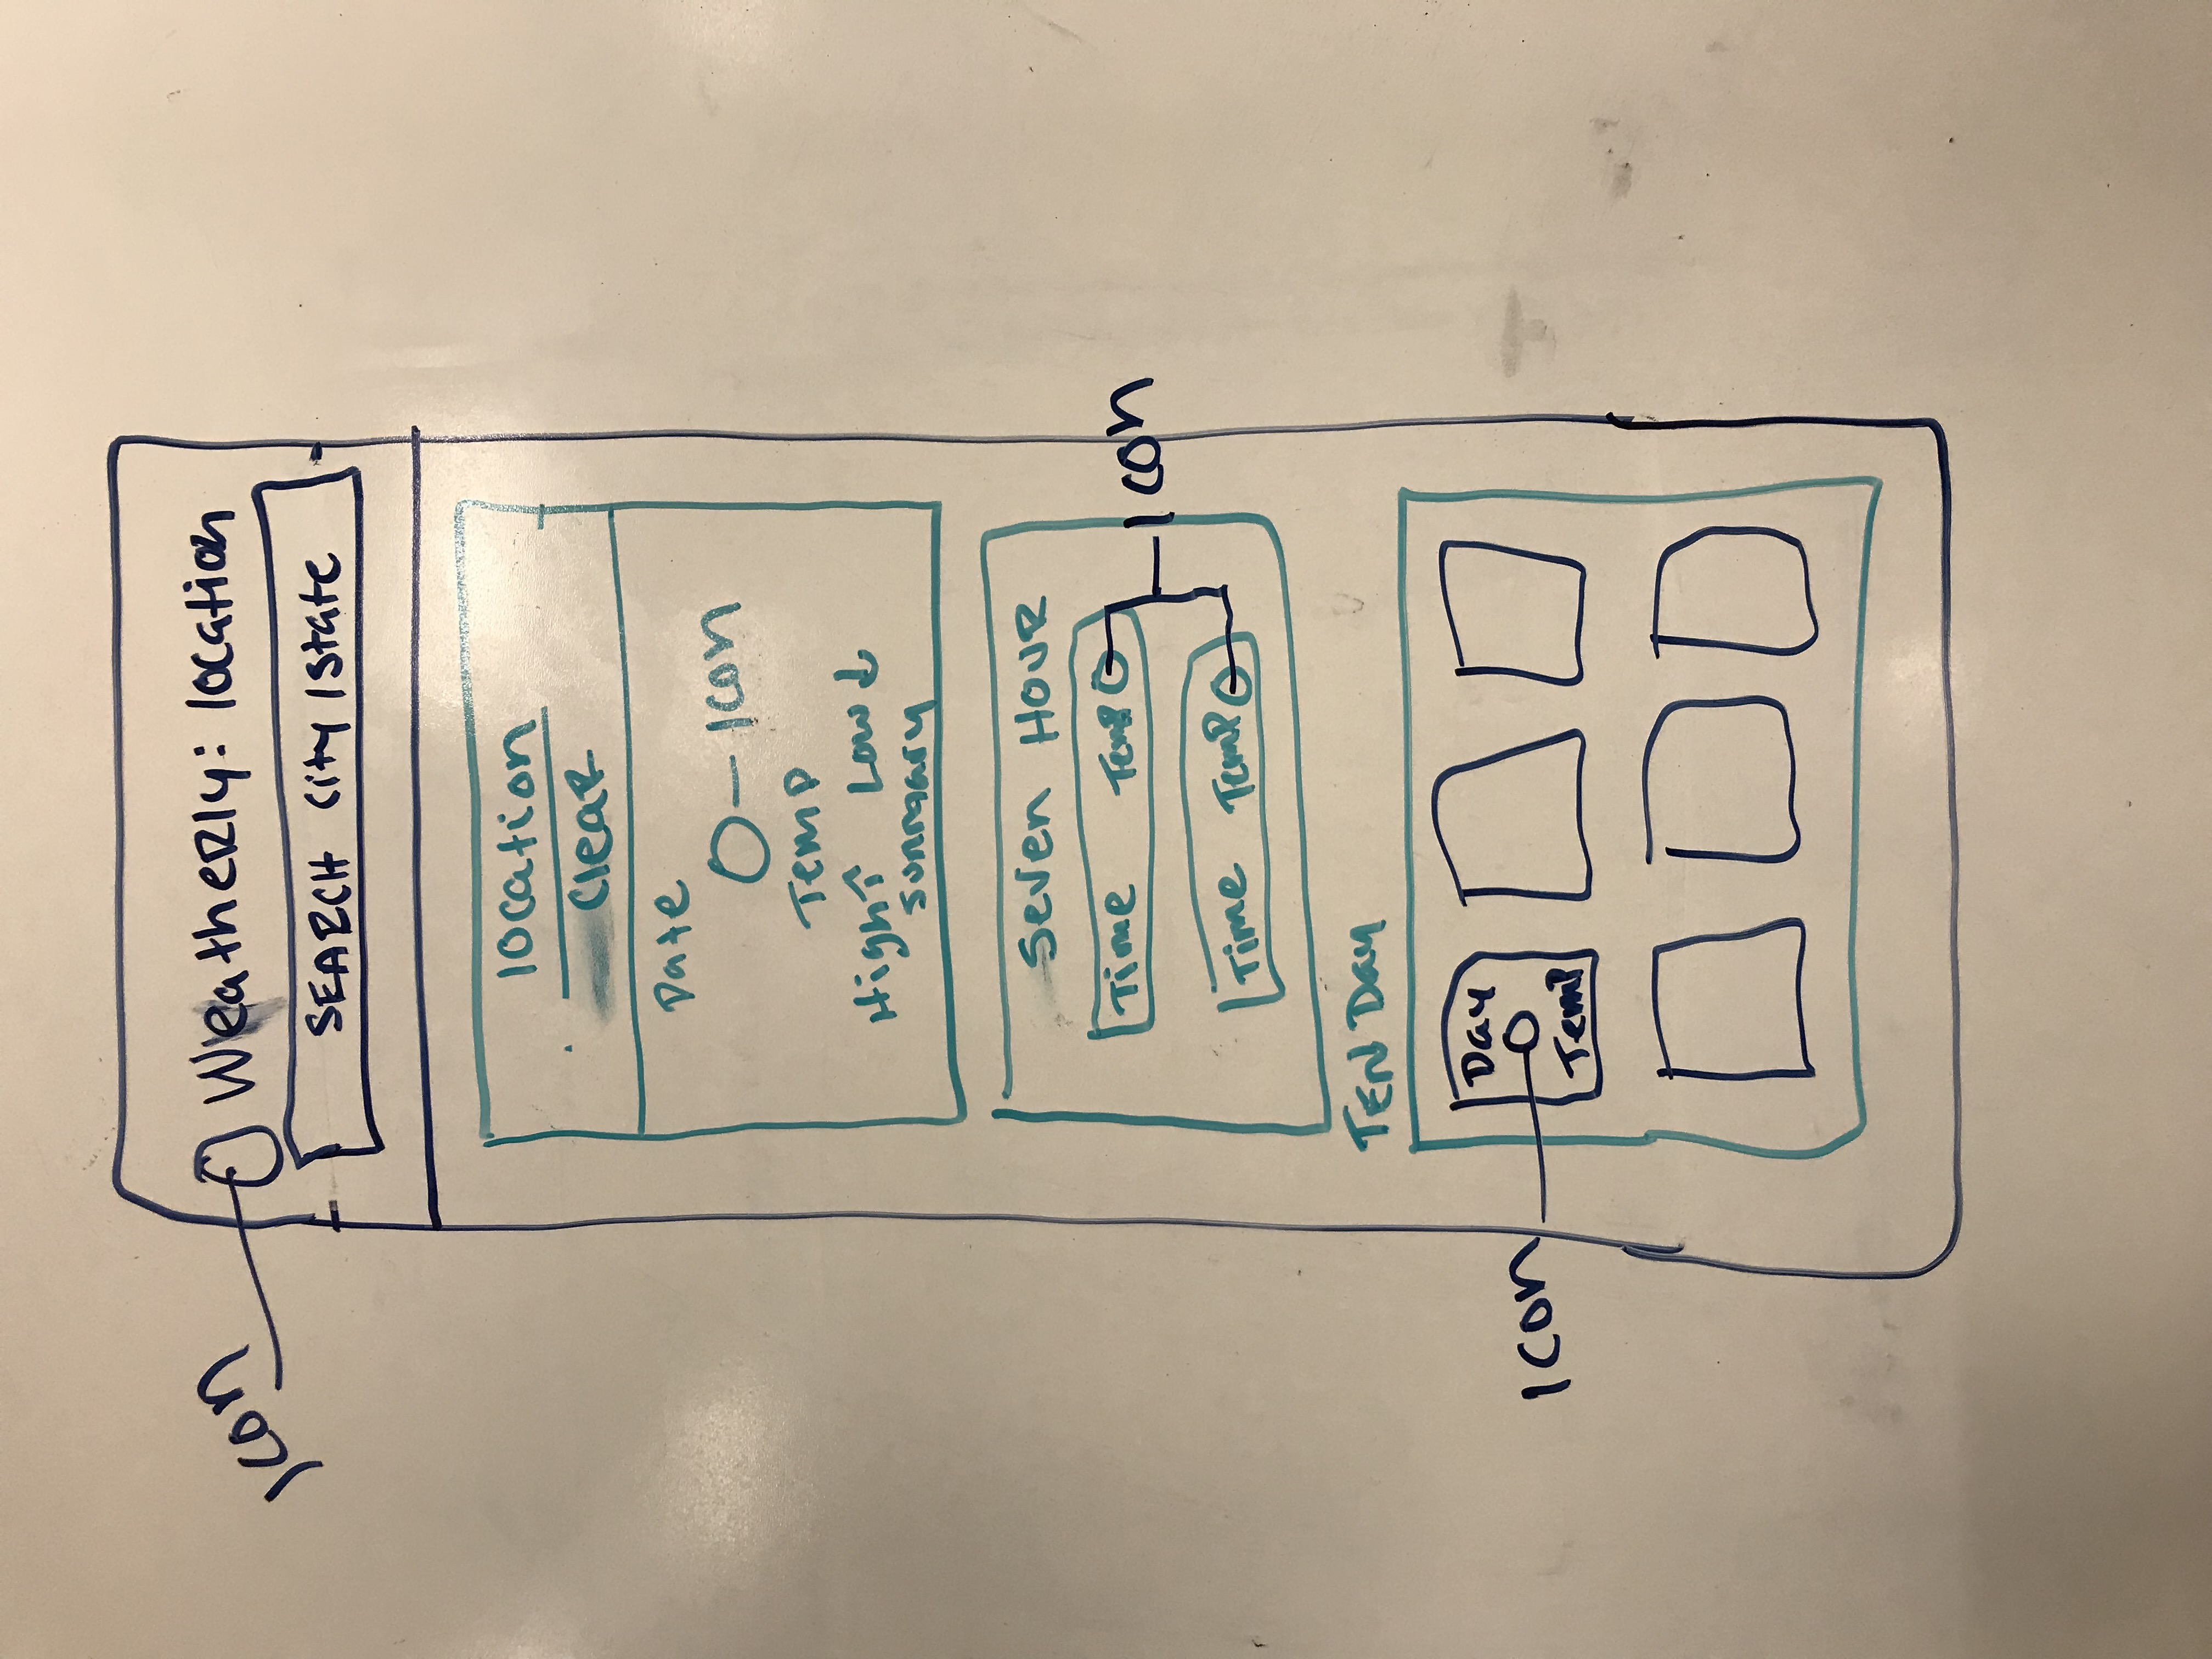 Icon
WeatheRly: location
SEARCH City/State
location
CleaR
Date
Icon
Temp
High↑ Low↓
Summary
Seven HOUR
Time Temp
Icon
Time Temp
TEN Day
Day
Icon
Temp